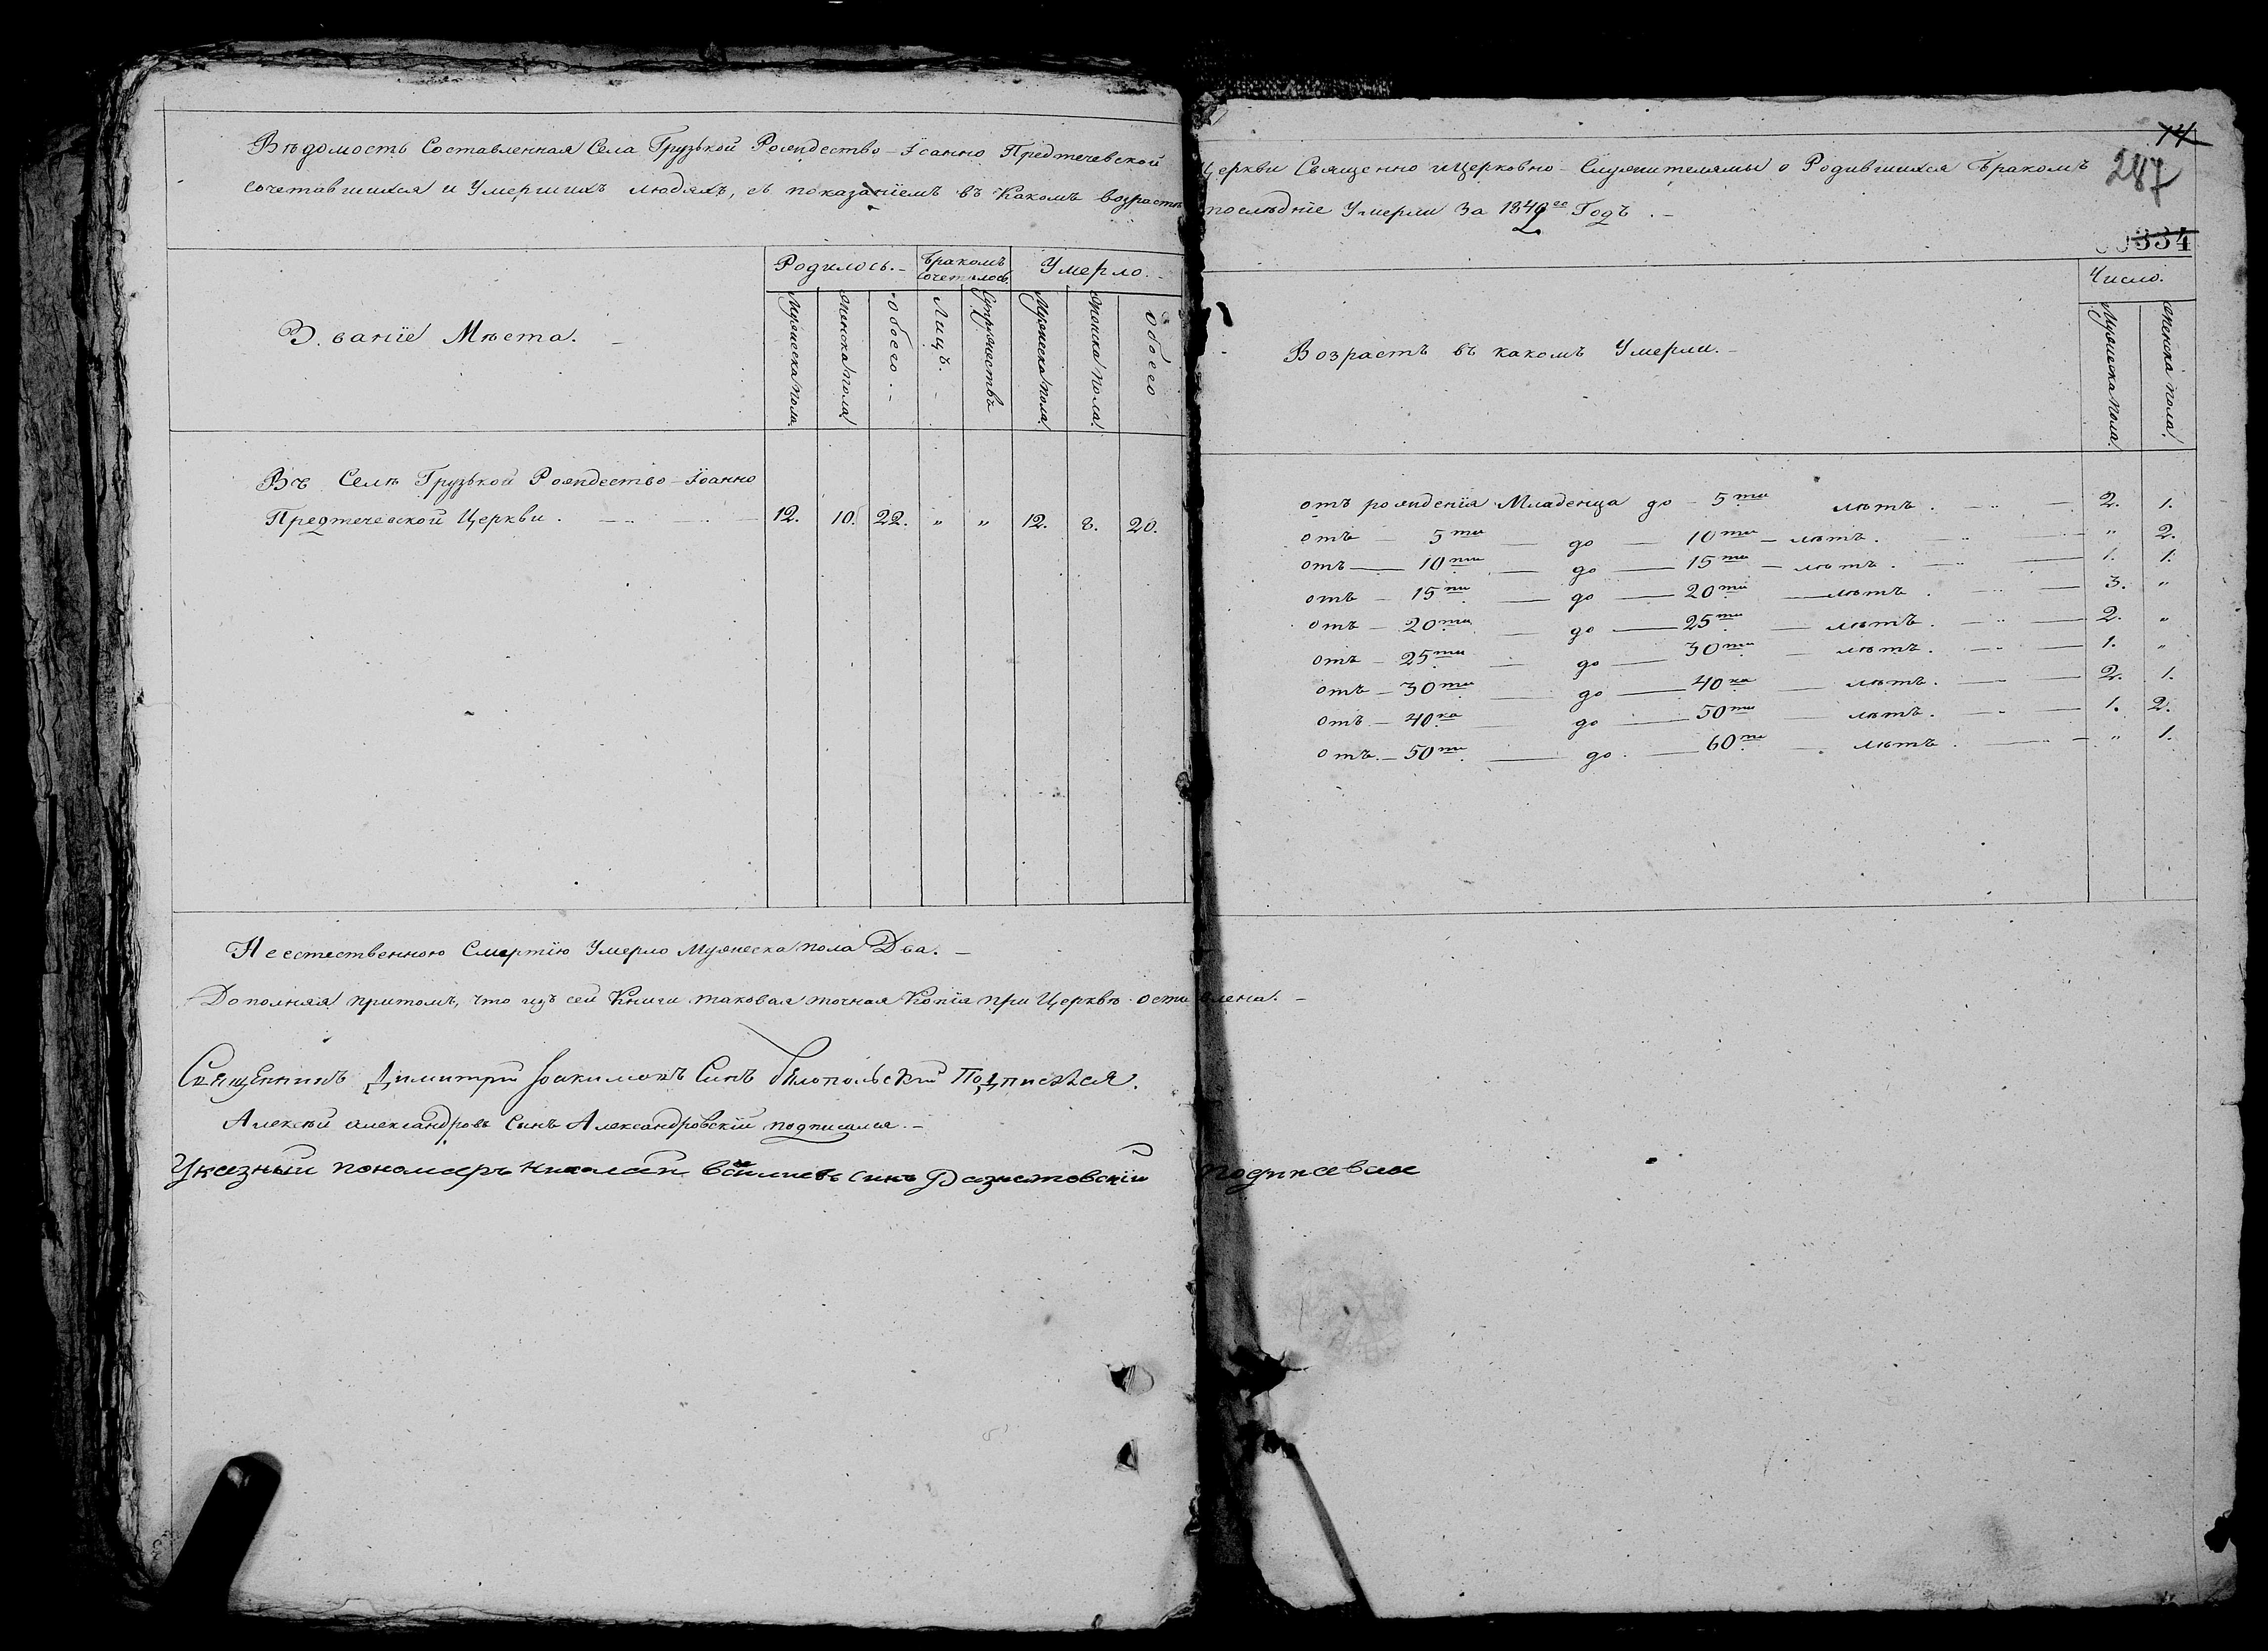 14
287
334
Вѣдомость Составленная Села Грузькой Рождество-Іоанно Предтечевской Церкви Священно и Церковно-Служителями о Родившихся Бракомъ
сочетавшихся и Умершихъ людяхъ, съ показаніемъ въ Какомъ возрастѣ послѣдніе Умерли За 1840ое Годъ.
Званіе Мѣста.
Родилось.
Бракомъ сочеталось
Умерло.
Мужеска пола
женска пола
обоего
Лицъ.
Супружествъ
Мужеска пола
женска пола
обоего
Возрастъ въ какомъ Умерли.
Число.
Мужеска пола
женска пола
Въ Селѣ Грузькой Рождество-Іоанно
Предтечевской Церкви. 12. 10. 22. „ „ 12. 8. 20.
отъ рожденія Младенца до 5ти лѣтъ. 2. 1.
отъ 5ти до 10ти лѣтъ. „ 2.
отъ 10ти до 15ти лѣтъ. 1. 1.
отъ 15ти до 20ти лѣтъ. 3. „
отъ 20ти до 25ти лѣтъ. 2. „
отъ 25ти до 30ти лѣтъ. 1. „
отъ 30ти до 40ка лѣтъ. 2. 1.
отъ 40ка до 50ти лѣтъ. 1. 2.
отъ 50ти до 60ти лѣтъ. „ 1.
Неестественною Смертію Умерло Мужеска пола Два.
Дополняя притомъ, что изъ сей Книги таковая точная Копія при Церквѣ оставлена.
Священникъ Димитрій Іоакимовъ Синъ Бѣлопольскій Подписался.
Алексѣй Александровъ Сынъ Александровскій подписался.
Указный пономарь Николай синъ